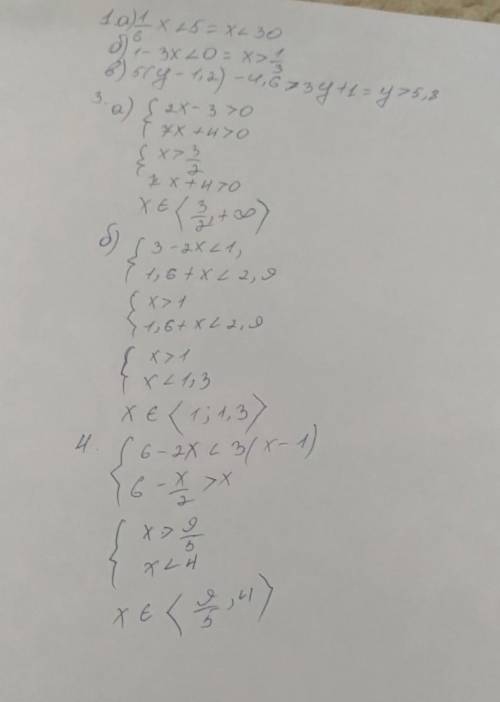 1.а) 1/6 x < 5 = x < 30
б) 1 - 3x < 0 = x > 1/3
в) 5(y - 1,2) - 4,6 > 3y + 1 = y > 5,8
3. а) { 2x - 3 > 0
7x + 4 > 0
{ x > 3/2
7x + 4 > 0
x ∈ ⟨3/2, +∞⟩
б) { 3 - 2x < 1,
1,6 + x < 2,9
{ x > 1
1,6 + x < 2,9
{ x > 1
x < 1,3
x ∈ ⟨1; 1,3⟩
4. { 6 - 2x < 3(x - 1)
6 - x/2 > x
{ x > 9/5
x < 4
x ∈ ⟨9/5, 4⟩